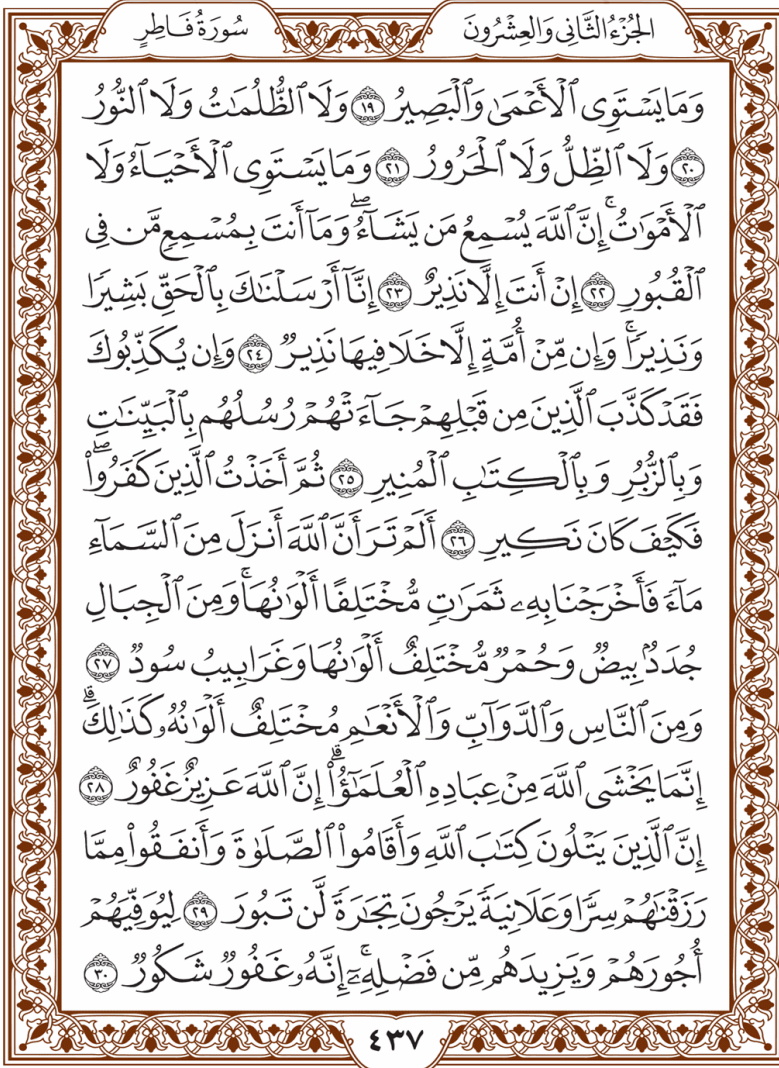 سُورَةُ فَاطِرٍ
الجُزْءُ الثَّانِي وَالعِشْرُونَ
وَمَا يَسْتَوِي ٱلْأَعْمَىٰ وَٱلْبَصِيرُ ١٩ وَلَا ٱلظُّلُمَٰتُ وَلَا ٱلنُّورُ
٢٠ وَلَا ٱلظِّلُّ وَلَا ٱلْحَرُورُ ٢١ وَمَا يَسْتَوِي ٱلْأَحْيَآءُ وَلَا
ٱلْأَمْوَٰتُۚ إِنَّ ٱللَّهَ يُسْمِعُ مَن يَشَآءُۖ وَمَآ أَنتَ بِمُسْمِعٖ مَّن فِي
ٱلْقُبُورِ ٢٢ إِنْ أَنتَ إِلَّا نَذِيرٌ ٢٣ إِنَّآ أَرْسَلْنَٰكَ بِٱلْحَقِّ بَشِيرٗا
وَنَذِيرٗاۚ وَإِن مِّنْ أُمَّةٍ إِلَّا خَلَا فِيهَا نَذِيرٞ ٢٤ وَإِن يُكَذِّبُوكَ
فَقَدْ كَذَّبَ ٱلَّذِينَ مِن قَبْلِهِمْ جَآءَتْهُمْ رُسُلُهُم بِٱلْبَيِّنَٰتِ
وَبِٱلزُّبُرِ وَبِٱلْكِتَٰبِ ٱلْمُنِيرِ ٢٥ ثُمَّ أَخَذْتُ ٱلَّذِينَ كَفَرُواْۖ
فَكَيْفَ كَانَ نَكِيرِ ٢٦ أَلَمْ تَرَ أَنَّ ٱللَّهَ أَنزَلَ مِنَ ٱلسَّمَآءِ
مَآءٗ فَأَخْرَجْنَا بِهِۦ ثَمَرَٰتٖ مُّخْتَلِفًا أَلْوَٰنُهَاۚ وَمِنَ ٱلْجِبَالِ
جُدَدُۢ بِيضٞ وَحُمْرٞ مُّخْتَلِفٌ أَلْوَٰنُهَا وَغَرَابِيبُ سُودٞ ٢٧
وَمِنَ ٱلنَّاسِ وَٱلدَّوَآبِّ وَٱلْأَنْعَٰمِ مُخْتَلِفٌ أَلْوَٰنُهُۥ كَذَٰلِكَۗ
إِنَّمَا يَخْشَى ٱللَّهَ مِنْ عِبَادِهِ ٱلْعُلَمَٰٓؤُاْۗ إِنَّ ٱللَّهَ عَزِيزٌ غَفُورٌ ٢٨
إِنَّ ٱلَّذِينَ يَتْلُونَ كِتَٰبَ ٱللَّهِ وَأَقَامُواْ ٱلصَّلَوٰةَ وَأَنفَقُواْ مِمَّا
رَزَقْنَٰهُمْ سِرّٗا وَعَلَانِيَةٗ يَرْجُونَ تِجَٰرَةٗ لَّن تَبُورَ ٢٩ لِيُوَفِّيَهُمْ
أُجُورَهُمْ وَيَزِيدَهُم مِّن فَضْلِهِۦٓۚ إِنَّهُۥ غَفُورٞ شَكُورٞ ٣٠
٤٣٧